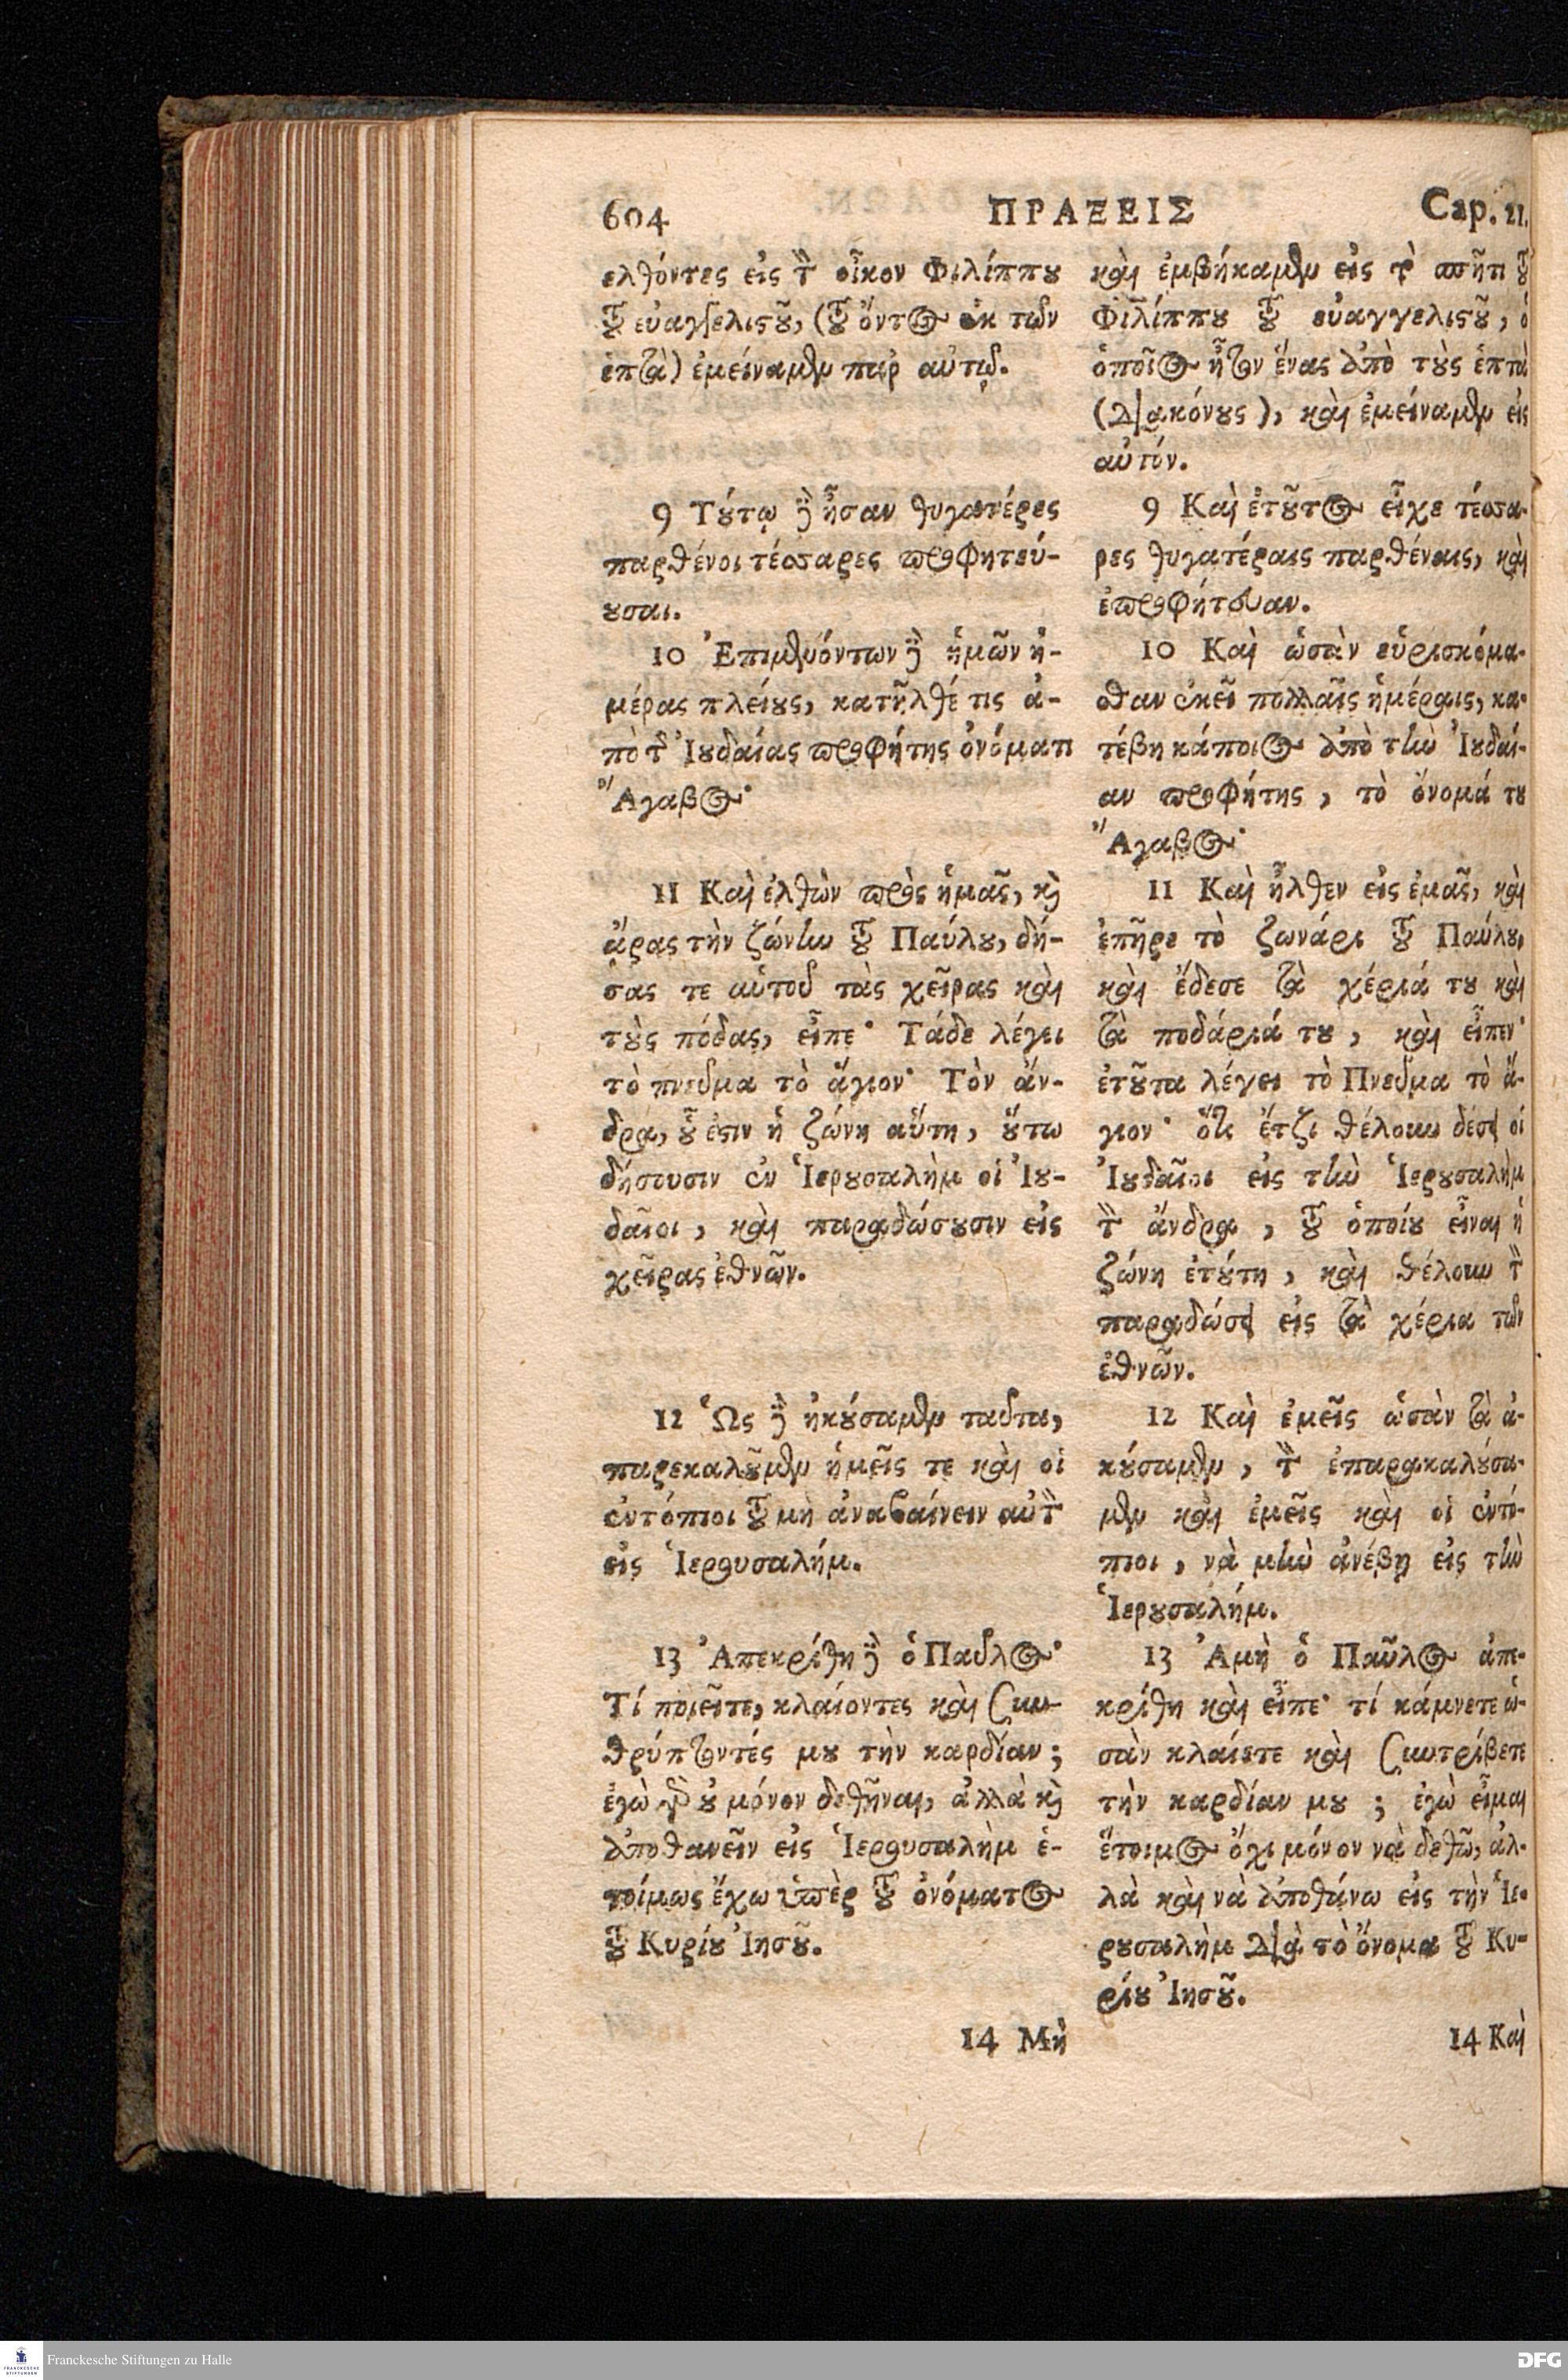 604
ΠΡΑΞΕΙΣ
Cap. 21.
ελθόντες εἰς τὸν οἶκον Φιλίππου
τοῦ εὐαγγελιστοῦ, (τοῦ ὄντος ἐκ τῶν
ἑπτὰ) ἐμείναμεν παρ αὐτῷ.
9 Τούτῳ δὲ ἦσαν θυγατέρες
παρθένοι τέσσαρες προφητεύ-
ουσαι.
10 Ἐπιμενόντων δὲ ἡμῶν ἡ-
μέρας πλείους, κατῆλθέ τις ἀ-
πὸ τῆς Ἰουδαίας προφήτης ὀνόματι
Ἄγαβος·
11 Καὶ ἐλθὼν πρὸς ἡμᾶς, καὶ
ἄρας τὴν ζώνην τοῦ Παύλου, δή-
σας τε αὑτοῦ τὰς χεῖρας καὶ
τοὺς πόδας, εἶπε· Τάδε λέγει
τὸ πνεῦμα τὸ ἅγιον· Τὸν ἄν-
δρα, οὗ ἐστιν ἡ ζώνη αὕτη, οὕτω
δήσουσιν ἐν Ἱερουσαλὴμ οἱ Ἰου-
δαῖοι, καὶ παραδώσουσιν εἰς
χεῖρας ἐθνῶν.
12 Ὡς δὲ ἠκούσαμεν ταῦτα,
παρεκαλοῦμεν ἡμεῖς τε καὶ οἱ
ἐντόπιοι τοῦ μὴ ἀναβαίνειν αὐτὸν
εἰς Ἱερουσαλήμ.
13 Ἀπεκρίθη δὲ ὁ Παῦλος·
Τί ποιεῖτε, κλαίοντες καὶ συν-
θρύπτοντές μου τὴν καρδίαν;
ἐγὼ γὰρ οὐ μόνον δεθῆναι, ἀλλὰ καὶ
ἀποθανεῖν εἰς Ἱερουσαλὴμ ἑ-
τοίμως ἔχω ὑπὲρ τοῦ ὀνόματος
τοῦ Κυρίου Ἰησοῦ.
14 Μὴ
καὶ ἐμβήκαμεν εἰς τὸ σπῆτι τοῦ
Φιλίππου τοῦ εὐαγγελιστοῦ, ὁ
ὁποῖος ἦτον ἕνας ἀπὸ τοὺς ἑπτὰ
(διακόνους), καὶ ἐμείναμεν εἰς
αὐτόν.
9 Καὶ ἐτοῦτος εἶχε τέσσα-
ρες θυγατέραις παρθέναις, καὶ
ἐπροφήτευαν.
10 Καὶ ὡσὰν εὑρισκόμα-
σθαν ἐκεῖ πολλαῖς ἡμέραις, κα-
τέβη κάποιος ἀπὸ τὴν Ἰουδαί-
αν προφήτης, τὸ ὄνομά του
Ἄγαβος·
11 Καὶ ἦλθεν εἰς ἐμᾶς, καὶ
ἐπῆρε τὸ ζωνάρι τοῦ Παύλου,
καὶ ἔδεσε τὰ χέριά του καὶ
τὰ ποδάριά του, καὶ εἶπεν·
ἐτοῦτα λέγει τὸ Πνεῦμα τὸ ἅ-
γιον· ὅτι ἔτζι θέλουν δέσει οἱ
Ἰουδαῖοι εἰς τὴν Ἱερουσαλὴμ
τὸν ἄνδρα, τοῦ ὁποίου εἶναι ἡ
ζώνη ἐτούτη, καὶ θέλουν τὸν
παραδώσει εἰς τὰ χέρια τῶν
ἐθνῶν.
12 Καὶ ἐμεῖς ὡσὰν τὰ ἀ-
κούσαμεν, τὸν ἐπαρακαλούσα-
μεν καὶ ἐμεῖς καὶ οἱ ἐντό-
πιοι, νὰ μὴν ἀνέβῃ εἰς τὴν
Ἱερουσαλήμ.
13 Ἀμὴ ὁ Παῦλος ἀπε-
κρίθη καὶ εἶπε· τί κάμνετε ὡ-
σὰν κλαίετε καὶ συντρίβετε
τὴν καρδίαν μου; ἐγὼ εἶμαι
ἕτοιμος ὄχι μόνον νὰ δεθῶ, ἀλ-
λὰ καὶ νὰ ἀποθάνω εἰς τὴν Ἱε-
ρουσαλὴμ διὰ τὸ ὄνομα τοῦ Κυ-
ρίου Ἰησοῦ.
14 Καὶ
Franckesche Stiftungen zu Halle
FRANCKESCHE STIFTUNGEN
DFG